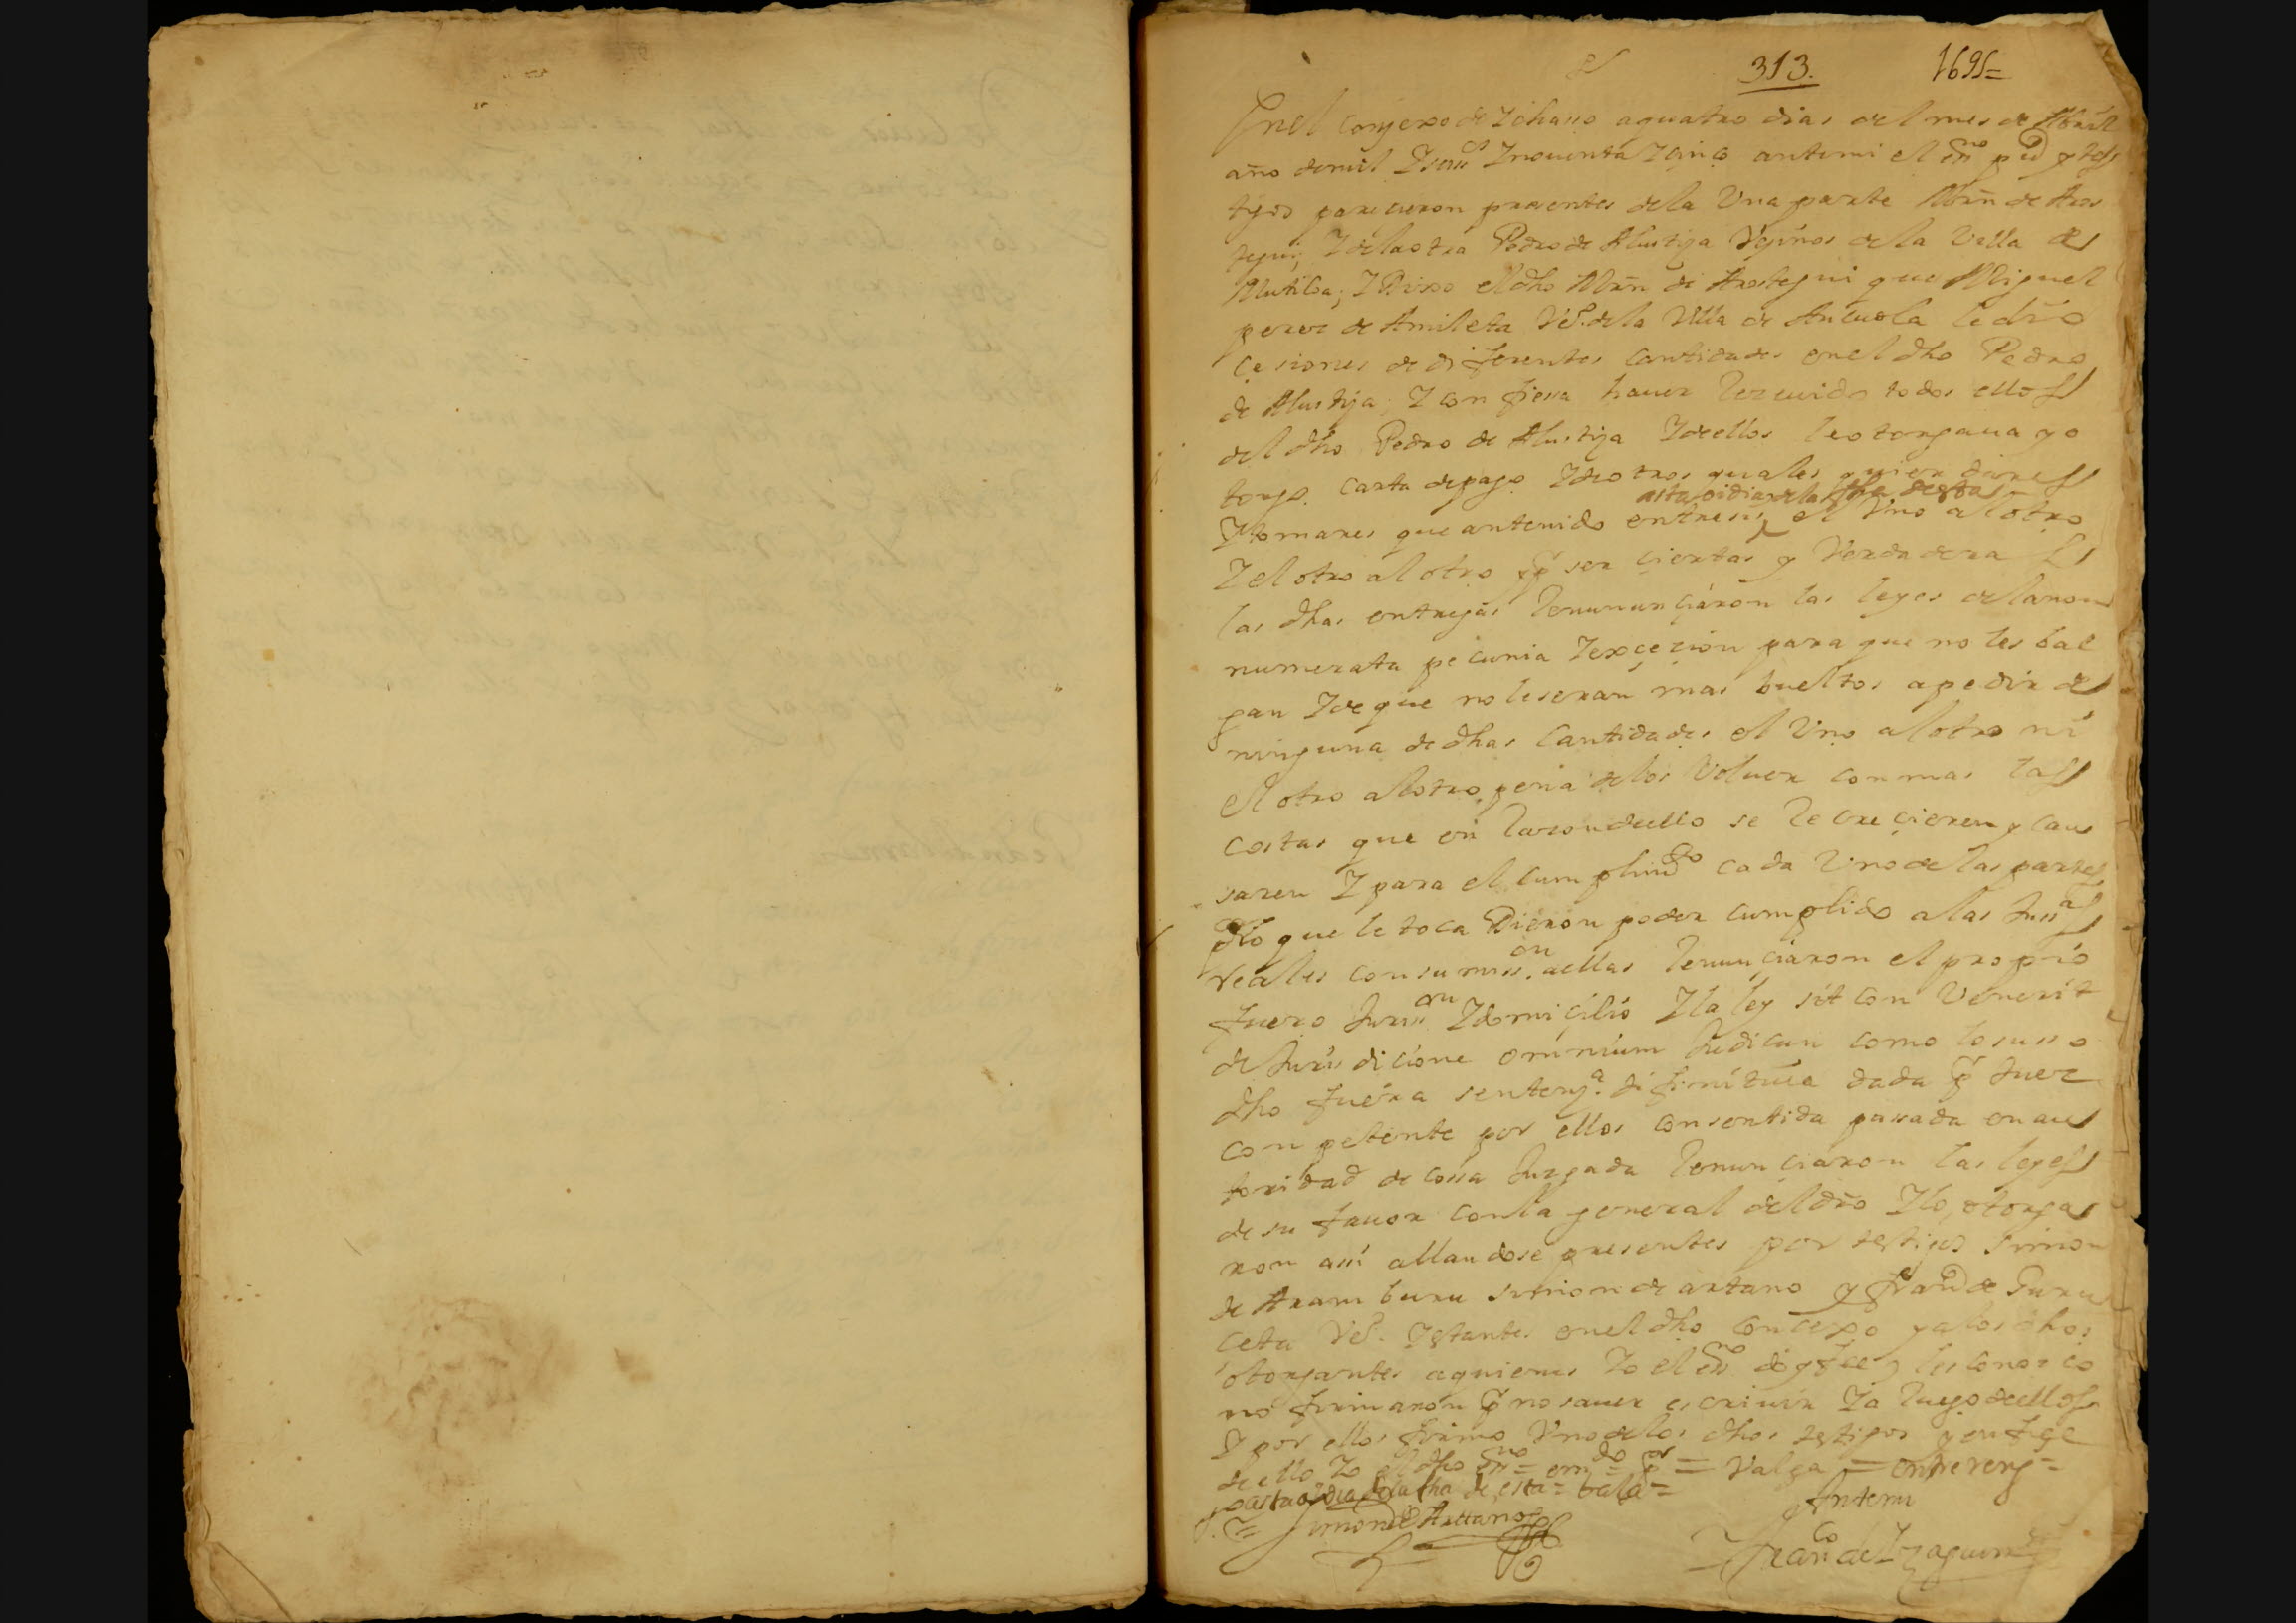 313. 1695=
En el conzexo de Ychaso a quatro dias del mes de Abril
año de mil y seisⁿ y nouenta y cinco ante mi el ssno pu^co y tes
tigos parecieron presentes de la Una parte Mrn de Aros
tegui, y de la otra Pedro de Alustiza Vezinos de la Villa de
Mutiloa; y Dixo el dho Mrn de Arostegui que Miguel
perez de Amileta Vº. de la Villa de Anzuola le dio
cesiones de diferentes Cantidades en el dho Pedro
de Alustiza; y confiessa hauer Rezeuido todos ellos
del dho Pedro de Alustiza y de ellos le otorgaua y o
torgo Carta de pago y de otros quales quier dares
y tomares que an tenido entre si, el Uno al otro
asta oi dia de la fha desta
y el otro al otro pr ser ciertas y Verdaderas
las dhas entregas Renununciaron las leyes de la non
numerata pecunia y excecion para que no les bal
gan y de que no le seran mas bueltos a pedir de
ninguna de dhas Cantidades el Uno al otro ni
el otro al otro pena de los Voluer con mas las
costas que en Razon de ello se le Crecieren y Cau
saren y para el cumplimto cada Uno de las partes
pr lo que le toca Dieron poder cumplido a las Jussas
reales con su miss.on a ellas Renunciaron el proprio
fuero Juriss.on y domicilio y la ley sit con Venerit
de Jurisdicione omnium Judicun como lo suso
dho fuera sentenza. difinitiua dada pr Juez
competente por ellos consentida passada en au
toridad de cossa Juzgada Renunciaron las leyes
de su fauor con la general del dro y lo otorga
ron assi allandose presentes por testigos Simon
de Aramburu Simon de artano y Franco de Guru
ceta Vº. y estantes en el dho concexo y a los dhos
otorgantes a quienes Yo el ssno doy fee, les conozco
no firmaron pr no sauer escriuir y a Ruego de ellos
y por ellos firmo Uno de los dhos testigos y en fee
de ello Yo el dho ssno = emdo = pr = Valga = entrereng =
asta oi dia de la fha de esta = bala =
Simon de Arttano
Ante mi
Franco de Yzaguirre